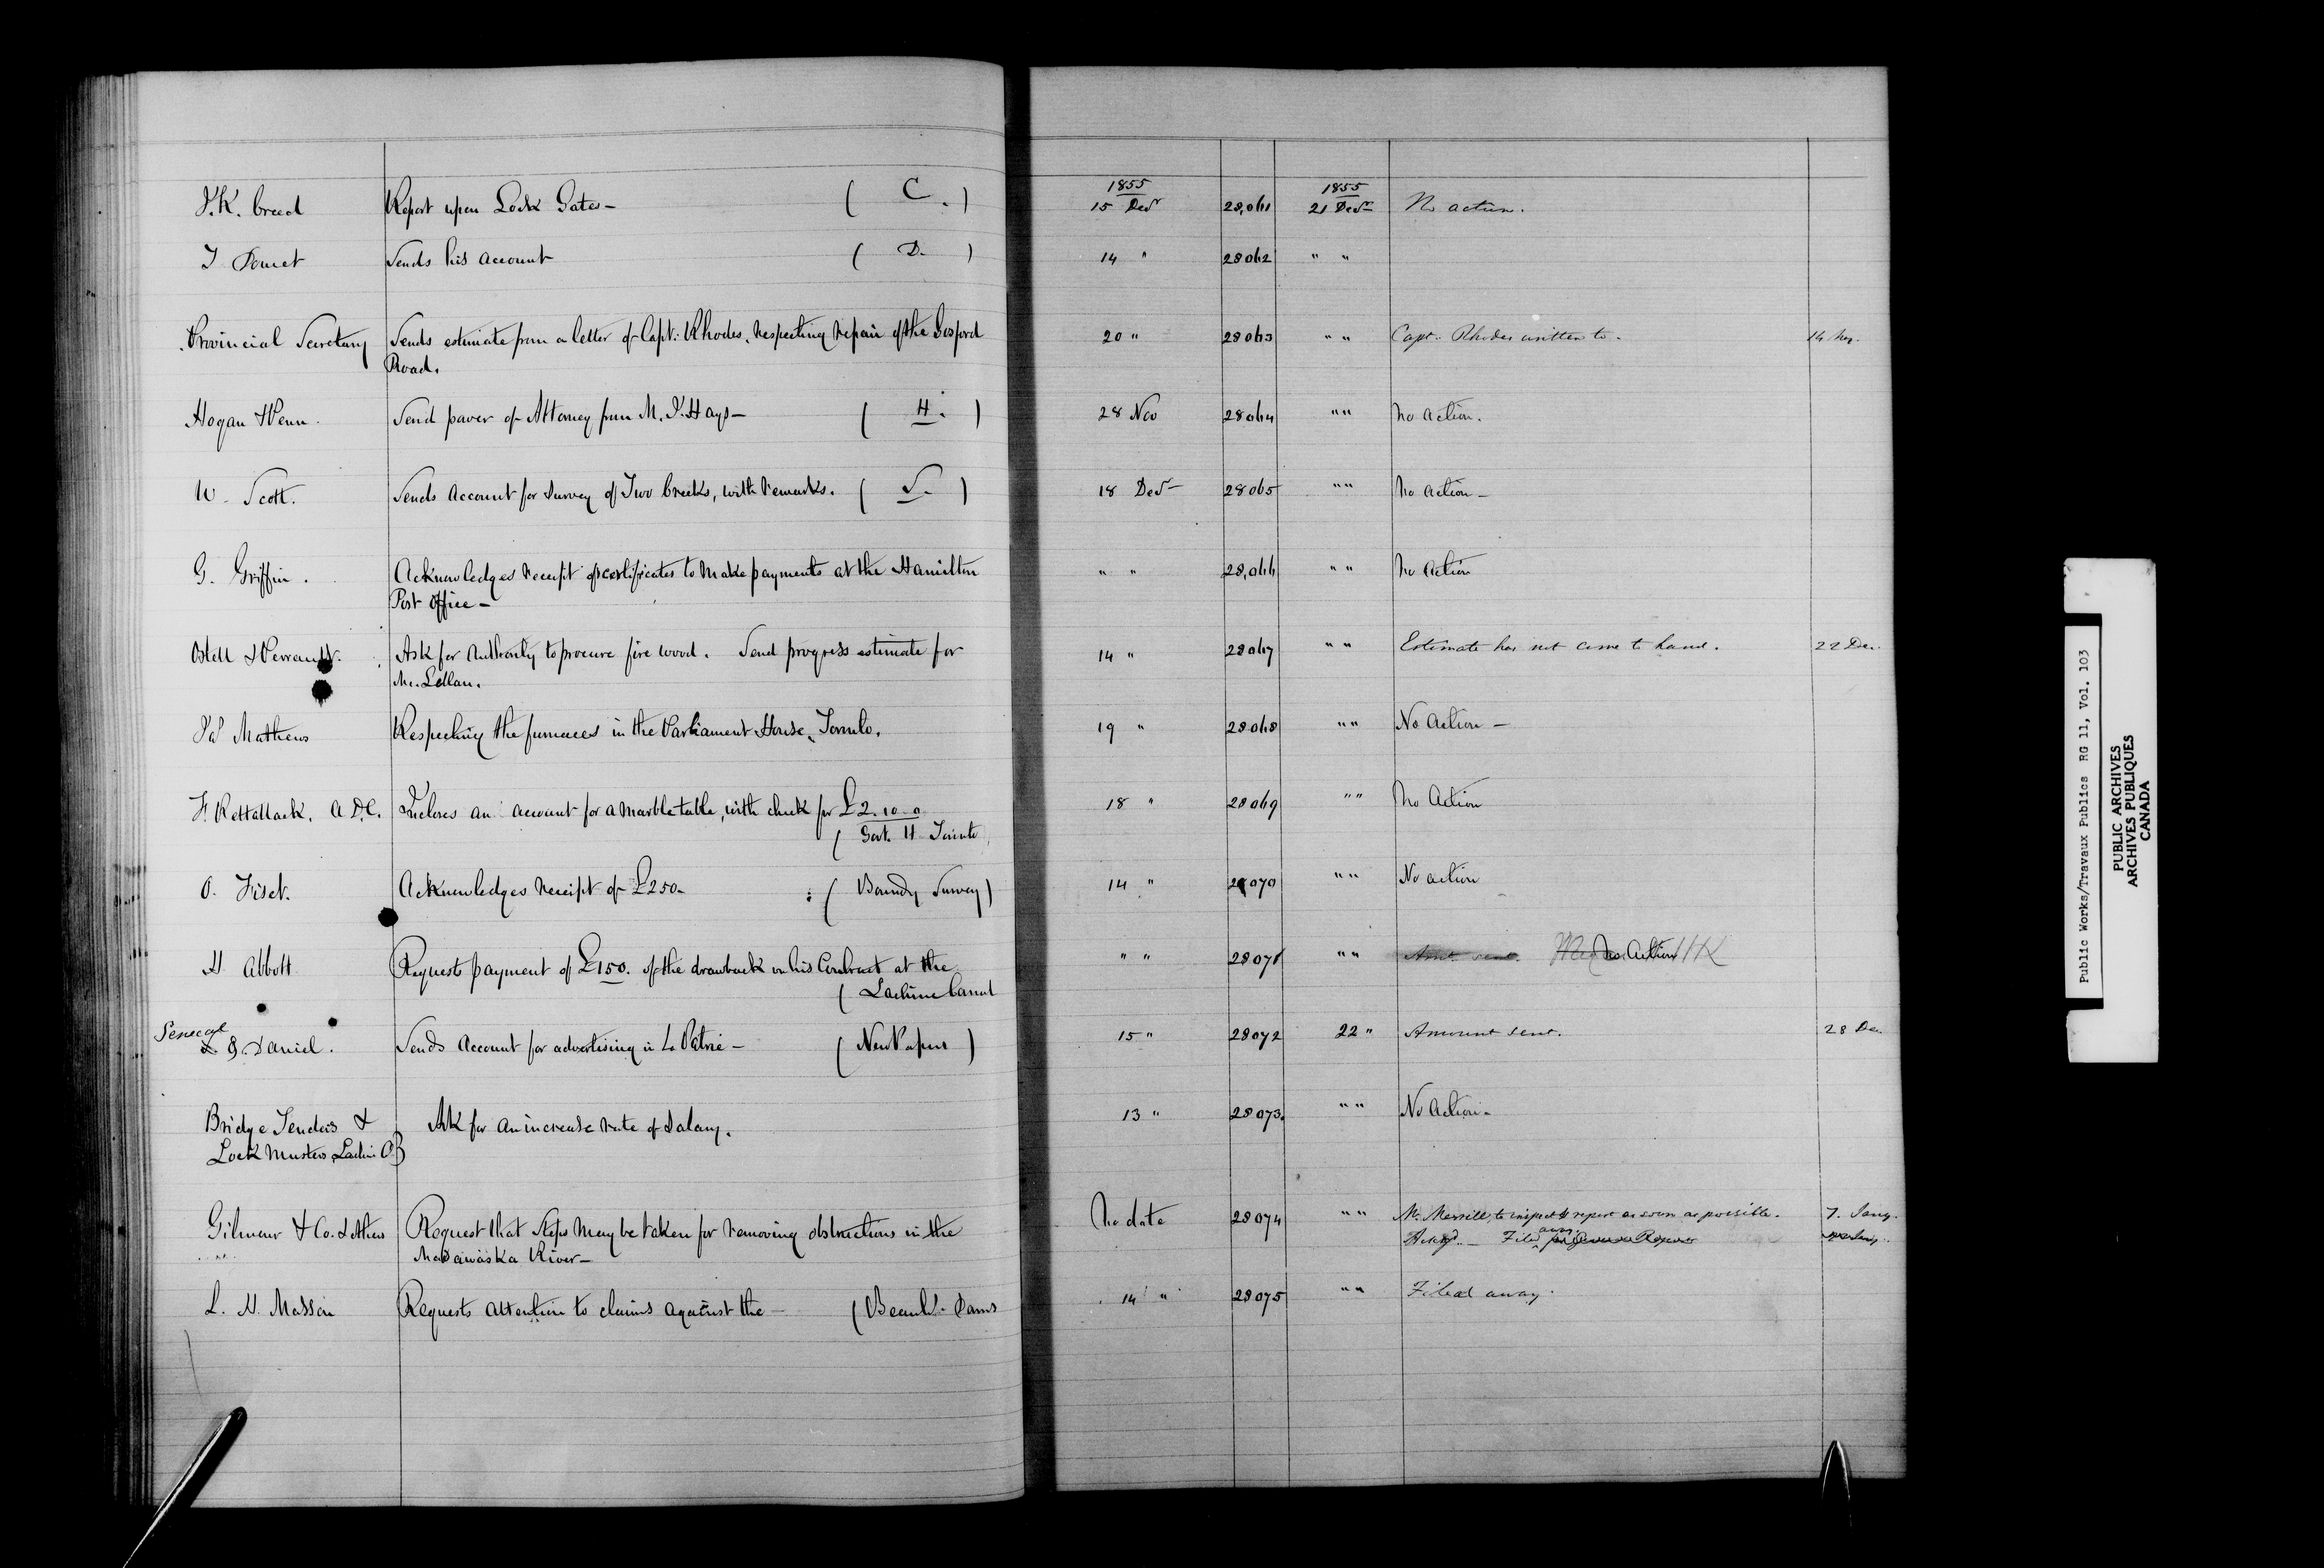 1855 1855
J.K. Creed Report upon Lock Gates – ( C. ) 15 Decr 28,061 21 Decr No action.
J Doucet Sends his account ( D. ) 14 " 28062 " "
Provincial Secretary Sends estimate from a letter of Capt: Rhodes, respecting repair of the Gosford 20 " 28063 " " Capt. Rhodes written to.
Road.
Hogan & Penn Send power of Attorney from M. J. Hays – ( H. ) 28 Nov 28064 " " No action.
W. Scott. Sends Account for survey of Two Creeks, with remarks. ( S. ) 18 Decr – 28065 " " No action –
G. Griffin. Acknowledges receipt of certificates to make payments at the Hamilton " " 28,066 " " No Action
Post Office –
Ostell & Perrault. Ask for Authority to procure fire wood. Send progress estimate for 14 " 28067 " " Estimate has not come to hand. 22 Dec.
Mc.Lellan.
Jas Mathews Respecting the furnaces in the Parliament House, Toronto. 19 " 28068 " " No Action –
F. Rettallack, A.D.C. Incloses an account for a marble table, with check for £2.10.0 18 " 28069 " " No Action
( Govt. H Toronto
O. Fiset. Acknowledges receipt of £250– : ( Boundy Survey ) 14 " 28070 " " No action
H Abbott Requests payment of £150. of the drawback on his Contract at the " " 28071 " " Amt. sent. No Action
( Lachine Canal
Senecal
& & Daniel. Sends Account for advertising in La Patrie – ( NewsPapers ) 15 " 28072 22 " Amount sent. 28 Dec
Bridge Tenders & Ask for an increase rate of salary. 13 " 28073. " " No Action –
Lock Masters, Lachine C.
Gilmour & Co. & others Request that Steps may be taken for removing obstructions in the No date 28074 " " Mr. Merrill to inspect & report as soon as possible. 7. Jany.
Madawaska River – Ackgd. – Filed away
L. H. Masson Requests attention to claims against the – ( Beauhs. Dams 14 " 28075 " " Filed away.
Public Works/Travaux Publics RG 11, Vol. 103
PUBLIC ARCHIVES
ARCHIVES PUBLIQUES
CANADA